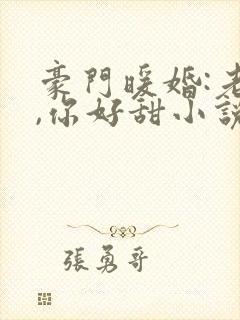 豪門暖婚:老
,你好甜小說
張勇哥